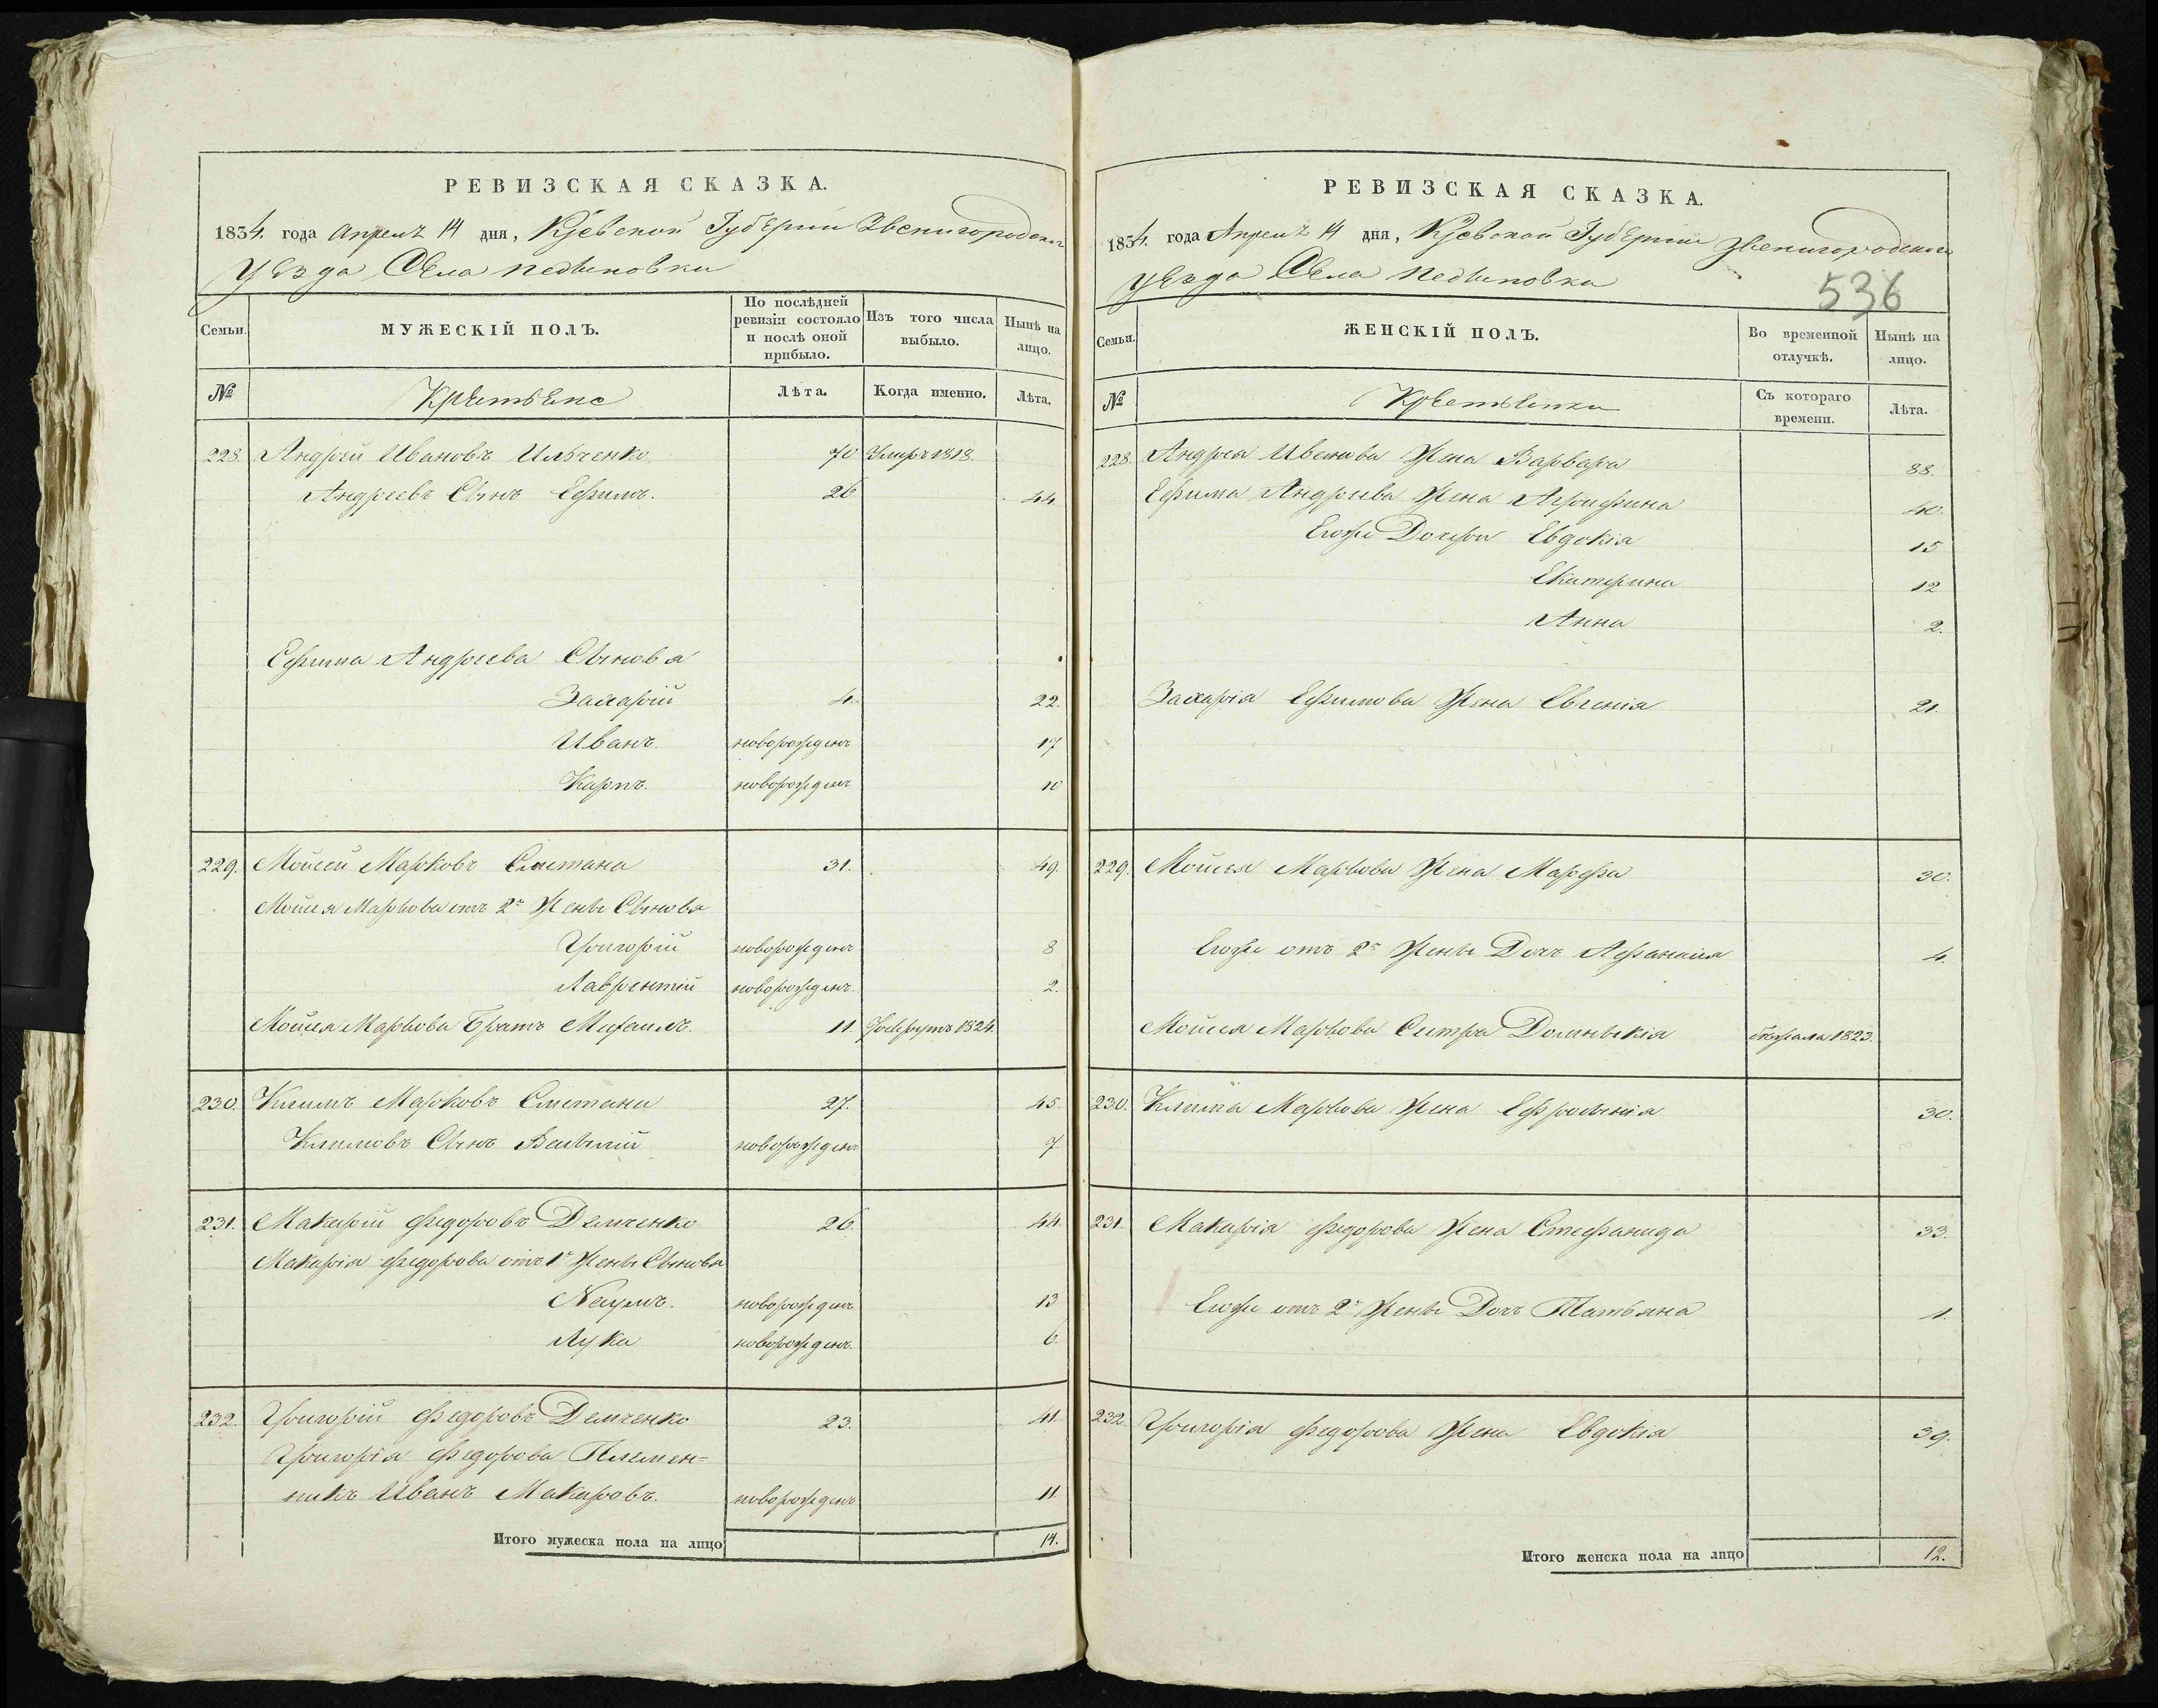 РЕВИЗСКАЯ СКАЗКА.
1834. года Апреля 14 дня, Кіевской Губерніи Звенигородского
Уѣзда Села Пединовки
Семьи.
МУЖЕСКІЙ ПОЛЪ.
По послѣдней ревизіи состояло и послѣ оной прибыло.
Изъ того числа выбыло.
Нынѣ на лицо.
№
Крѣстьяне
Лѣта.
Когда именно.
Лѣта.
228. Андрей Ивановъ Ильченко 70 Умеръ 1818.
Андреевъ Сынъ Ефимъ. 26 44
Ефима Андреева Сыновья
Захарій 4. 22.
Иванъ. новорожденъ 17
Карпъ. новорожденъ 10
229. Мойсей Марковъ Сметана 31. 49.
Мойсея Маркова отъ 2й Жены Сыновья
Григорій новорожденъ 8
Лаврентій новорожденъ. 2.
Мойсея Маркова Братъ Михаилъ. 11. 1824
230. Климъ Марковъ Сметана 27. 45.
Климовъ Сынъ Василій новорожденъ 7.
231. Макарій Федоровъ Демченко 26 44.
Макарія Федорова отъ 1й Жены Сыновья
Наумъ. новорожденъ 13
Лука новорожденъ. 6.
232. Григорій Федоровъ Демченко 23. 41.
Григорія Федорова Племен=
никъ Иванъ Макаровъ. новорожденъ 11.
Итого мужеска пола на лицо 14.
РЕВИЗСКАЯ СКАЗКА.
1834. года Апреля 14 дня, Кіевской Губерніи Звенигородского
Уѣзда Села Пединовки
536
Семьи.
ЖЕНСКІЙ ПОЛЪ.
Во временной отлучкѣ.
Нынѣ на лицо.
№
Крѣстьянки
Съ котораго времени.
Лѣта.
228. Андрея Иванова Жена Варвара 88.
Ефима Андреева Жена Агрифина 40.
Егоже Дочери Евдокія 15
Екатерина 12
Анна 2.
Захарія Ефимова Жена Евгенія 21.
229. Мойсея Маркова Жена Марфа 30.
Егоже отъ 2й Жены Дочь Афанасія 4.
Мойсея Маркова Сестра 1823.
230. Клима Маркова Жена Ефросинія 30.
231. Макарія Федорова Жена Стефанида 33.
Егоже отъ 2й Жены Дочь Татьяна 1.
232. Григорія Федорова Жена Евдокія 39.
Итого женска пола на лицо 12.